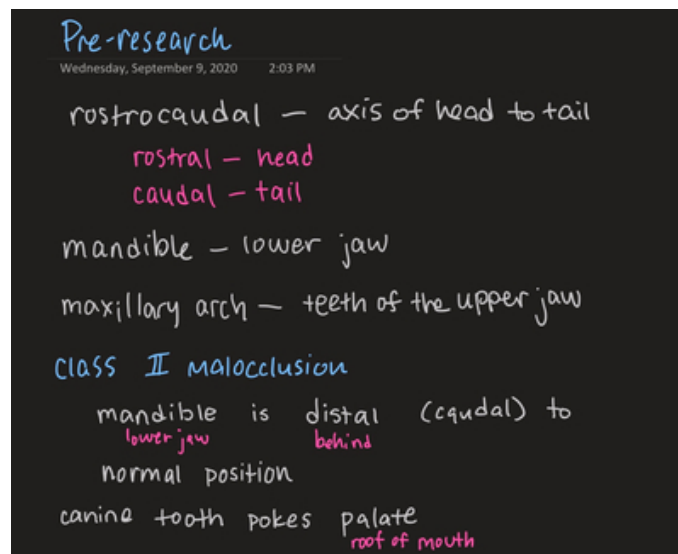 Pre-research
Wednesday, September 9, 2020 2:03 PM
rostrocaudal – axis of head to tail
rostral – head
caudal – tail
mandible – lower jaw
maxillary arch – teeth of the upper jaw
Class II malocclusion
mandible is distal (caudal) to
lower jaw behind
normal position
canine tooth pokes palate
roof of mouth